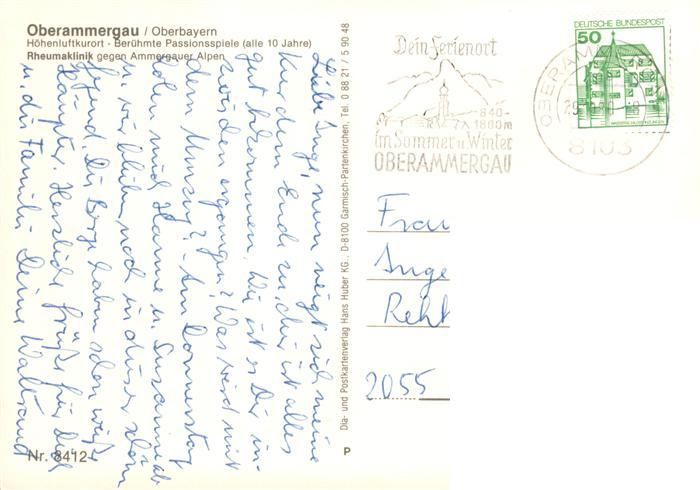 Oberammergau / Oberbayern
Höhenluftkurort - Berühmte Passionsspiele (alle 10 Jahre)
Rheumaklinik gegen Ammergauer Alpen
Liebe Inge, nun neigt sich meine
Kur dem Ende zu, mir ist alles
gut bekommen. Wie ist es Dir in-
zwischen ergangen? Was wird mit
dem Umzug? - Am Donnerstag
holen mich Hanne u. Susanne ab
u. wir bleiben noch in dieser schönen
Gegend. Die Berge haben schon weiße
Häupter. Herzliche Grüße für Dich
u. die Familie Deine Waltraud
Nr. 8412
Dia- und Postkartenverlag Hans Huber KG., D-8100 Garmisch-Partenkirchen, Tel. 0 88 21 / 5 90 48
P
Dein Ferienort
840-
1800m
im Sommer u Winter
OBERAMMERGAU
DEUTSCHE BUNDESPOST
50
OBERAMM
8103
Frau
Inge
Reht
2055